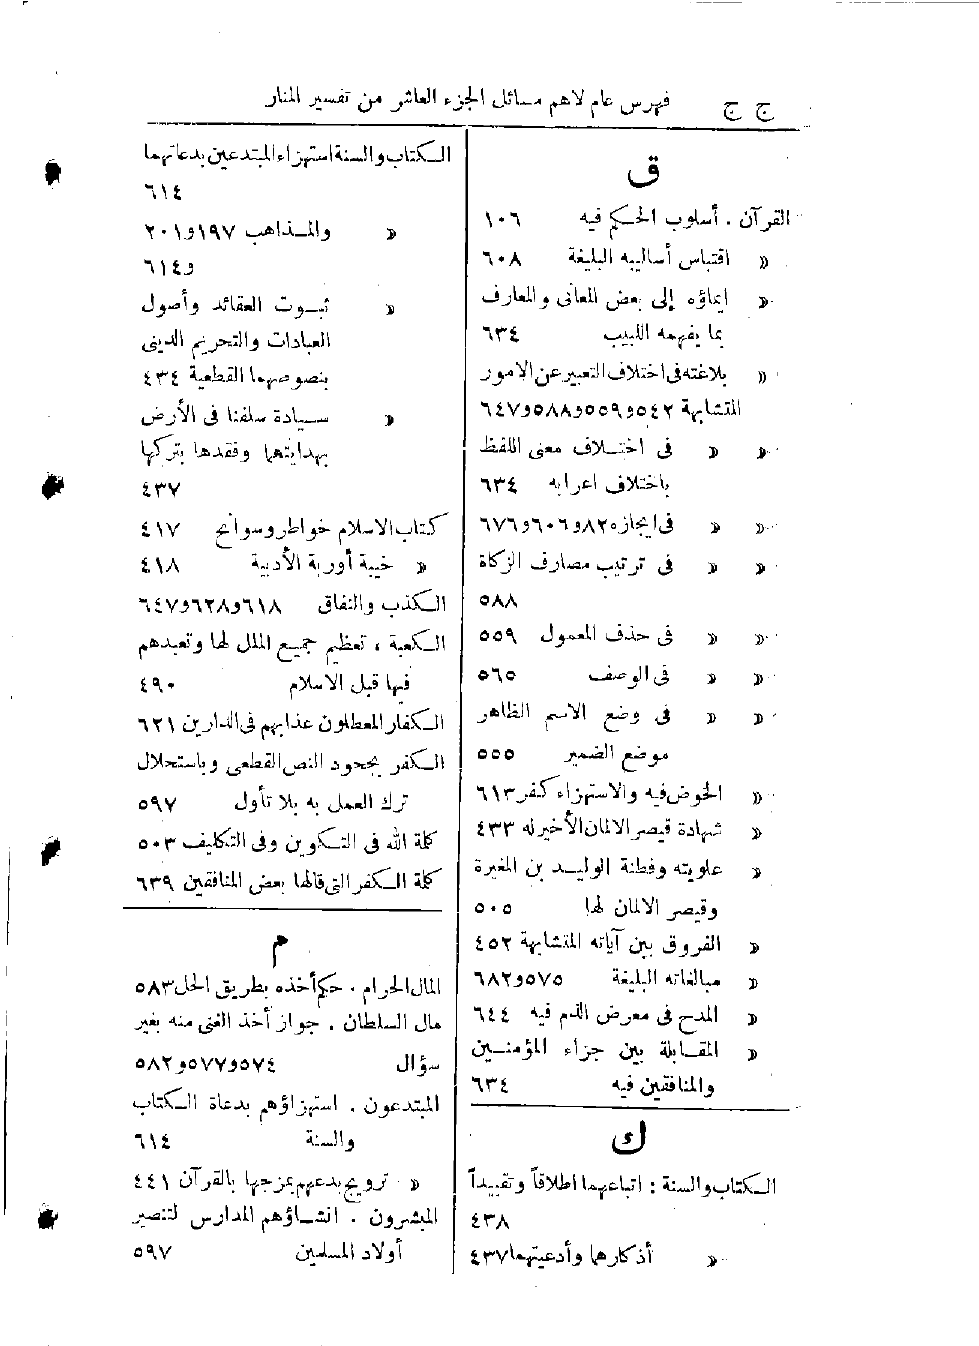 ج ج    فهرس عام لاهم مسائل الجزء العاشر من تفسير المنار
ق
القرآن . أسلوب الحكم فيه ١٠٦
« اقتباس أساليبه البليغة ٦٠٨
« إيماؤه إلى بعض المعانى والمعارف
بما يفهمه اللبيب ٦٣٤
« بلاغته فى اختلاف التعبير عن الامور
المتشابهة ٥٤٢و٥٥٩و٥٨٨و٦٤٧
« « فى اختلاف معنى اللفظ
باختلاف اعرابه ٦٣٤
« « فى ايجازه ٨٢و٦٠٦و٦٧٦
« « فى ترتيب مصارف الزكاة
٥٨٨
« « فى حذف المعمول ٥٥٩
« « فى الوصف ٥٦٥
« « فى وضع الاسم الظاهر
موضع الضمير ٥٥٥
« الخوض فيه والاستهزاء كفر ٦١٣
« شهادة قيصر الالمان الأخير له ٤٣٣
« علويته وفطنة الوليد بن المغيرة
وقيصر الالمان لها ٥٠٥
« الفروق بين آياته المتشابهة ٤٥٢
« مبالغاته البليغة ٥٧٥و٦٨٢
« المدح فى معرض الذم فيه ٦٤٤
« المقابلة بين جزاء المؤمنين
والمنافقين فيه ٦٣٤
ك
الكتاب والسنة : اتباعهما اطلاقاً وتقييداً
٤٣٨
« أذكارها وأدعيتهما ٤٣٧
الكتاب والسنة استهزاء المبتدعين بدعاتهما
٦١٤
« والمذاهب ١٩٧و٢٠١
و٦١٤
« ثبوت العقائد وأصول
العبادات والتحريم الدينى
بنصوصهما القطعية ٤٣٤
« سيادة سلفنا فى الأرض
بهدايتهما وفقدها بتركها
٤٣٧
كتاب الاسلام خواطر وسوانح ٤١٧
« خيبة أوربة الأدبية ٤١٨
الكذب والنفاق ٦١٨و٦٢٨و٦٤٧
الكعبة ، تعظيم جميع الملل لها وتعبدهم
فيها قبل الاسلام ٤٩٠
الكفار المعطلون عذابهم فى الدارين ٦٢١
الكفر بجحود النص القطعى وباستحلال
ترك العمل به بلا تأول ٥٩٧
كلمة الله فى التكوين وفى التكليف ٥٠٣
كلمة الكفر التى قالها بعض المنافقين ٦٣٩
م
المال الحرام . حكم أخذه بطريق الحل ٥٨٣
مال السلطان . جواز أخذ الغنى منه بغير
سؤال ٥٧٤و٥٧٧و٥٨٢
المبتدعون . استهزاؤهم بدعاة الكتاب
والسنة ٦١٤
« ترويج بدعهم بمزجها بالقرآن ٤٤١
المبشرون . انشاؤهم المدارس لتنصير
أولاد المسلمين ٥٩٧